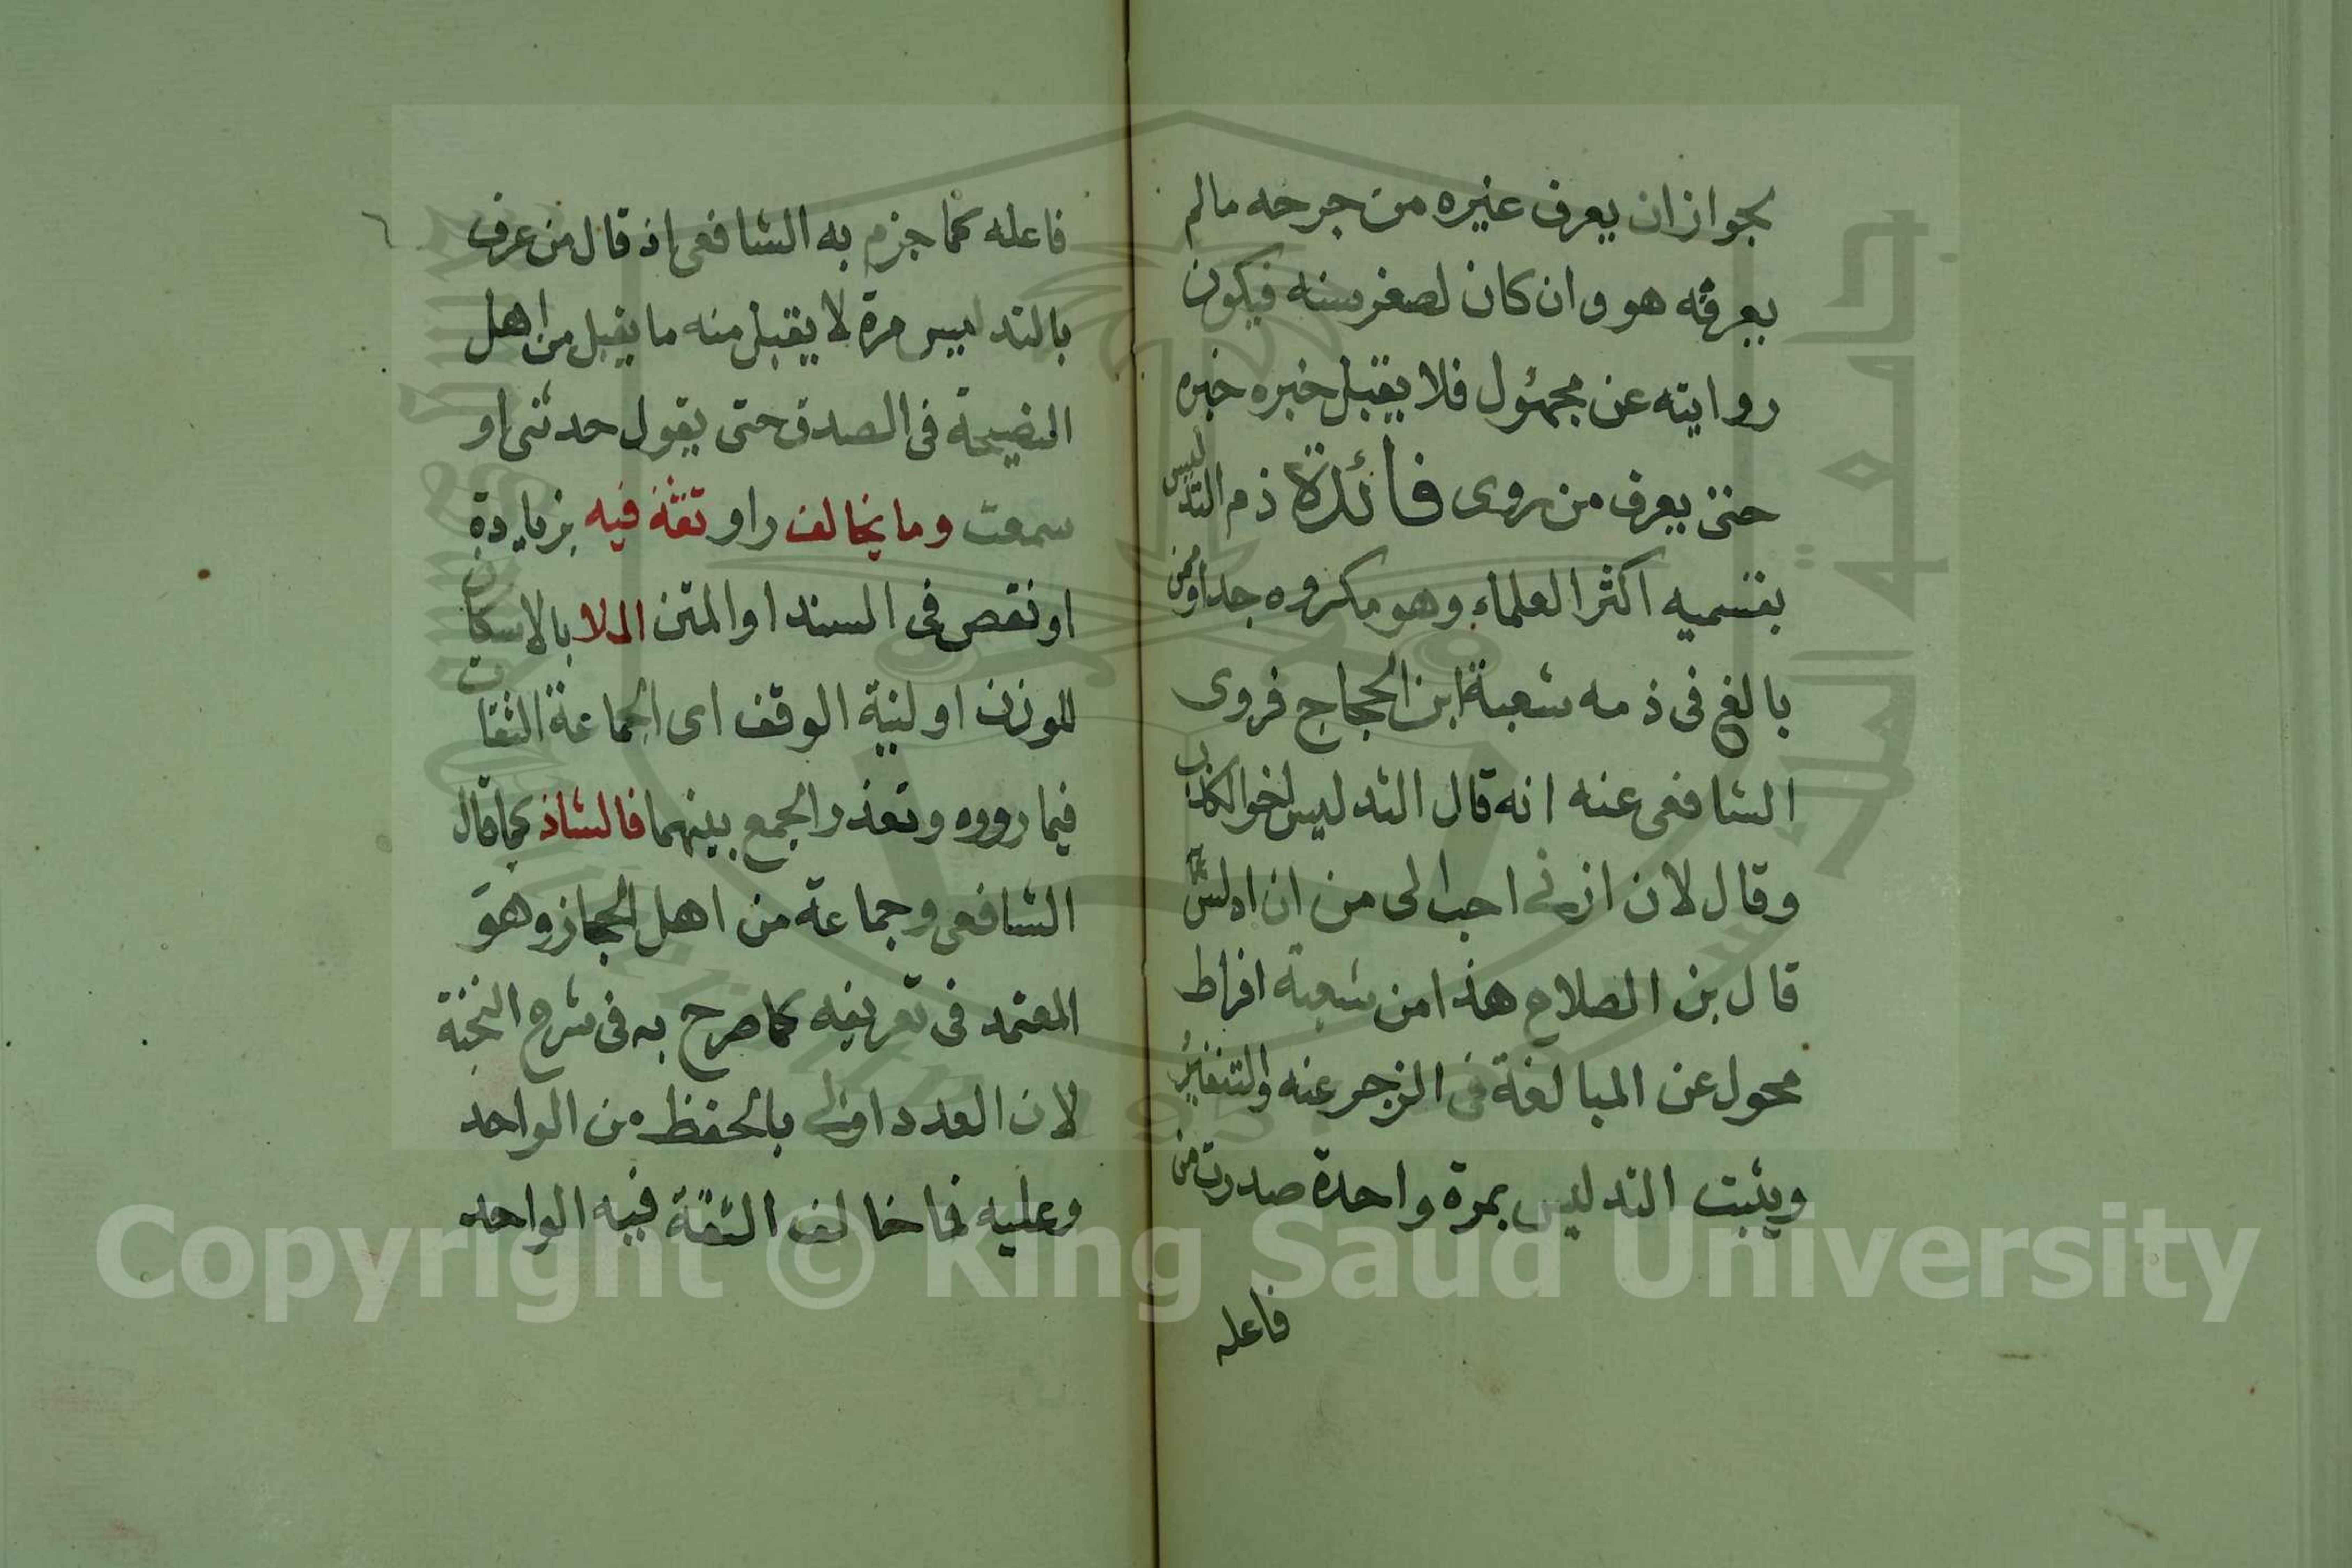 لجواز ان يعرف غيره من جرحه مالم
يعرفه هو وان كان لصغر سنه فيكون
روايته عن مجهئول فلا يقبل خبره خبره
حتى يعرف من روى فائدة ذم التدليس
بقسميه اكثر العلماء وهو مكروه جدا وممن
بالغ فى ذمه شعبة ابن الحجاج فروى
الشافعى عنه انه قال التدليس اخو الكذب
وقال لان ازنى احب الى من ان ادلس
قال بن الصلاح هذا من شعبة افراط
محمول عن المبالغة فى الزجر عنه والتنفير
ويثبت التدليس بمرة واحدة صدرت من
فاعله
٦
فاعله كما جزم به الشافعى اذ قال من عرف
بالتدليس مرة لا يقبل منه ما يقبل من اهل
النصيحة فى الصدق حتى يقول حدثنى او
سمعت وما يخالف راو ثقة فيه بزيادة
او نقص فى السند او المتن الملا بالاسكان
للوزن او لنية الوقف اى الجماعة الثقات
فيما رووه وتعذر الجمع بينهما فالشاذ كما قال
الشافعى وجماعة من اهل الحجاز وهو
المعتمد فى تعريفه كما صرح به فى شرح النخبة
لان العدد اولى بالحفظ من الواحد
وعليه فما خالف الثقة فيه الواحد
جامعة الملك سعود
King Saud University
1957
Copyright © King Saud University